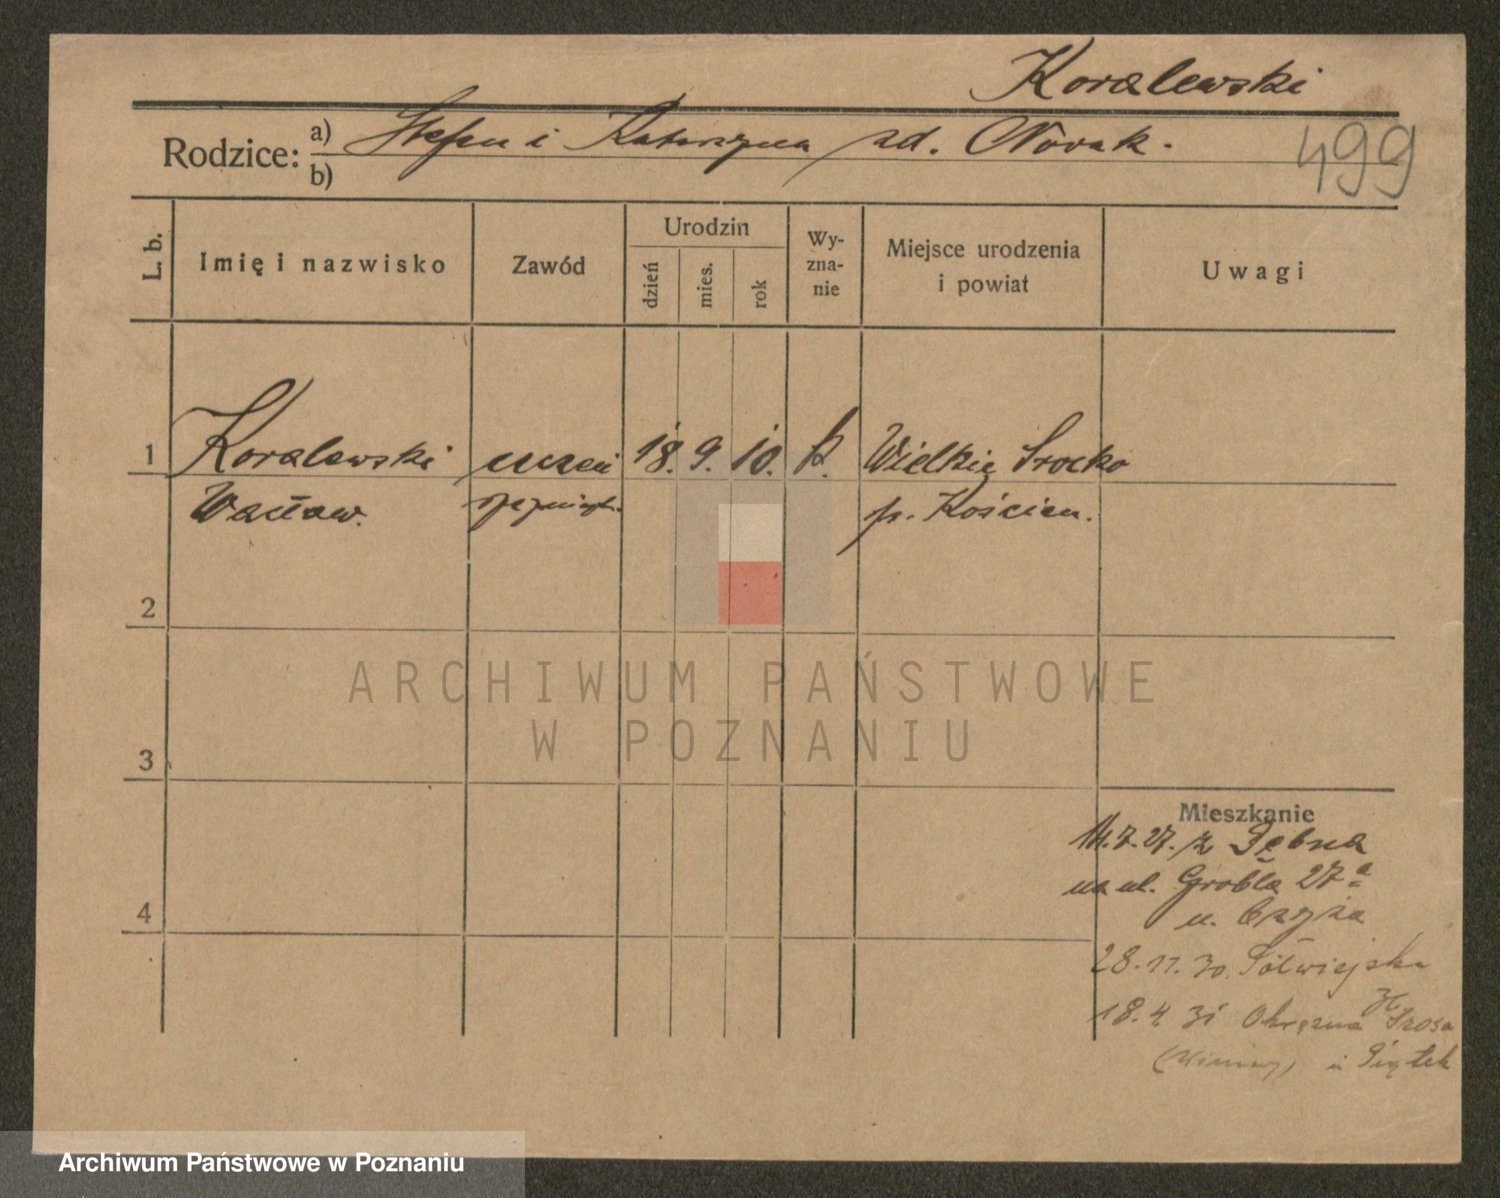 Koralewski
Rodzice: a) Stefan i Katarzyna zd. Nowak.
b)
499
L. b.
Imię i nazwisko
Zawód
Urodzin
dzień
mies.
rok
Wy-
zna-
nie
Miejsce urodzenia
i powiat
Uwagi
1 Koralewski uczeń 18. 9. 10. k. Wielkie Srocko
Wacław. p. Kościan.
2
3
4
ARCHIWUM PAŃSTWOWE
W POZNANIU
Mieszkanie
14.7.27. z Dębna
na ul. Grobla 27a
u. Czyża
28.11.30. Półwiejska
18.4.31 Okrężna Szosa
(Winiary) u Piątek
Archiwum Państwowe w Poznaniu